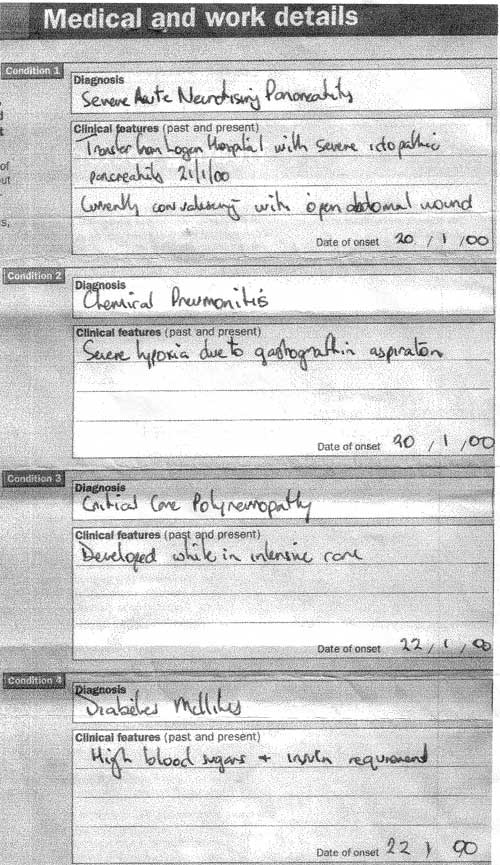 Medical and work details
Condition 1
Diagnosis
Severe Acute Necrotising Pancreatitis
Clinical features (past and present)
Transfer from Logan Hospital with severe idiopathic
pancreatitis 21/1/00
Currently convalescing with open abdominal wound
Date of onset 20 / 1 / 00
of
Condition 2
Diagnosis
Chemical Pneumonitis
Clinical features (past and present)
Severe hypoxia due to gastrografin aspiration
Date of onset 20 / 1 / 00
Condition 3
Diagnosis
Critical Care Polyneuropathy
Clinical features (past and present)
Developed while in intensive care
Date of onset 22 / 1 / 00
Condition 4
Diagnosis
Diabetes Mellitus
Clinical features (past and present)
High blood sugars + insulin requirement
Date of onset 22 1 00